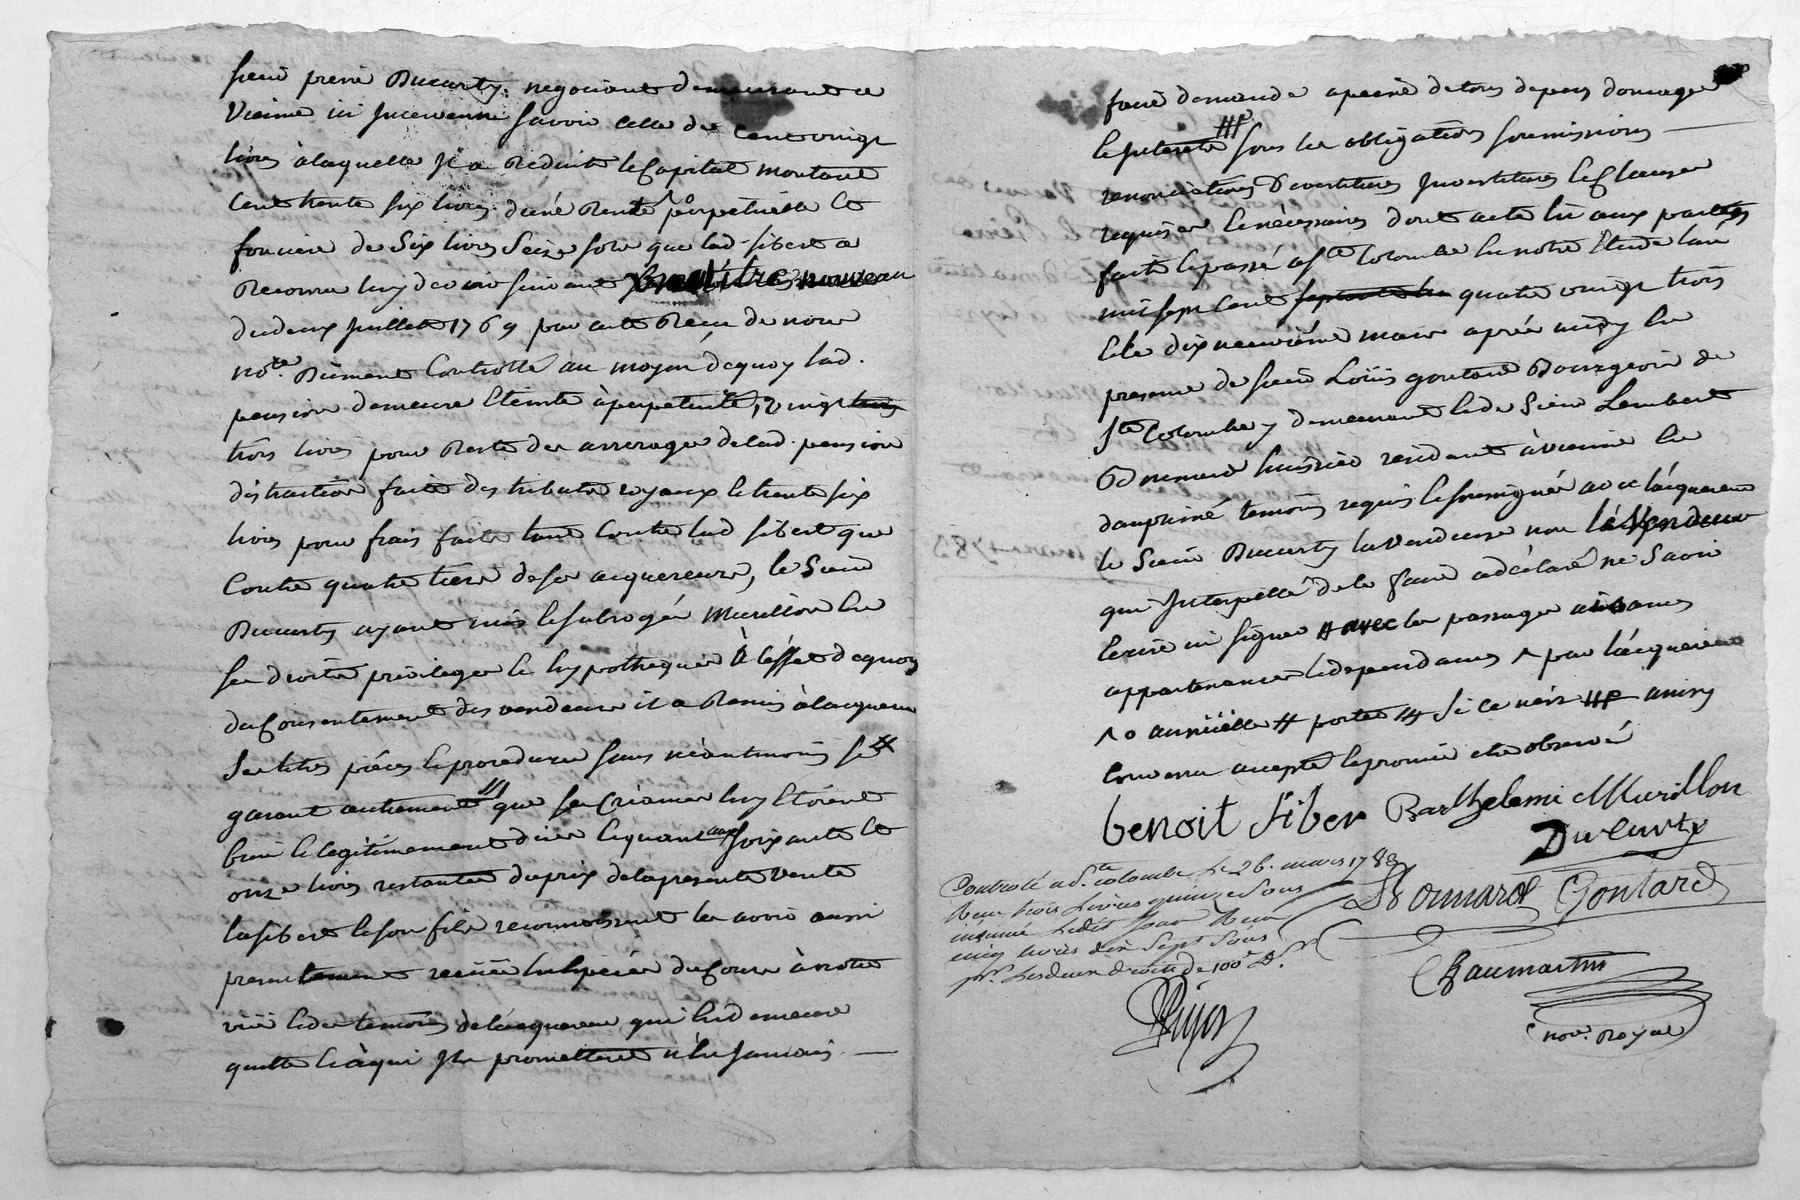 sieur pierre Ducurty negociant demeurant a
Vienne ici Intervenu savoir celle de cent vingt
livres à laquelle Il a Reduit le Capital montant
Cent trente six livres d'une Rente perpetuelle et
fonciere de Six livres Seize sols que lad. sibert a
Reconnu luy devoir suivant titre nouveau
du deux Juillet 1769 par acte Recu de nous
no.re Duement Controllé au moyen de quoy lad.
pension demeure Eteinte à perpetuité, vingt
trois livres pour Reste des arrerages de lad. pension
distraction faite des tributs royaux et trente six
livres pour frais faits tant Contre lad sibert que
Contre quatre tiers de ses acquereurs, le Sieur
Ducurty ayant mis et subrogé Murillon en
ses droits privileges et hypotheques à l'effet de quoy
du Consentement des vendeurs il a Remis à lacquereur
Ses titres pieces et procedures sans néantmoins se
garant autrement que sa Créance luy Etoient
bien et legitimement dues et quant aux soixante et
onze livres restantes du prix de la presente Vente
la sibert et son fils reconnoissent les avoir aussi
presentement reçues en Especes du Cours à notre
vue et des temoins de lacquereur qui en demeure
quitte et à qui Ils promettent n'en Jamais —
faire demande a peine de tous depens domages
Interets sous les obligations soumissions —
renonciations Devestitures Investitures et Clauses
requises et nécessaires dont acte lu aux parties
fait et passé a S.te Colombe en notre Etude l'an
mil sept cent septante huit quatre vingt trois
et le dix neuvième mars après midy en
presence de sieur Loüis gontard Bourgeois de
S.te Colombe y demeurant et de Sieur Lambert
Bonnard huissier residant à vienne en
dauphiné temoins requis et soussignés avec lacquereur
le Sieur Ducurty la vendeuse non le Vendeur
qui Interpellé de le faire a declaré ne Savoir
Ecrire ni signer # avec les passages aisances
appartenances et dependances ^ par lacquereur
^ o annüelle # portes # Si ce n'est ### ainsy
convenu accepté et promis etre observé
benoit Siber Barthelemi Murillon
Ducurty
Controlé a S.te colombe le 26. mars 1783
Reçu trois Livres quinze Sous
insinué Ledit Jour Reçu
cinq livres dix Sept Sous
Bonnard Gontard
Chaumartin
no.re Royal